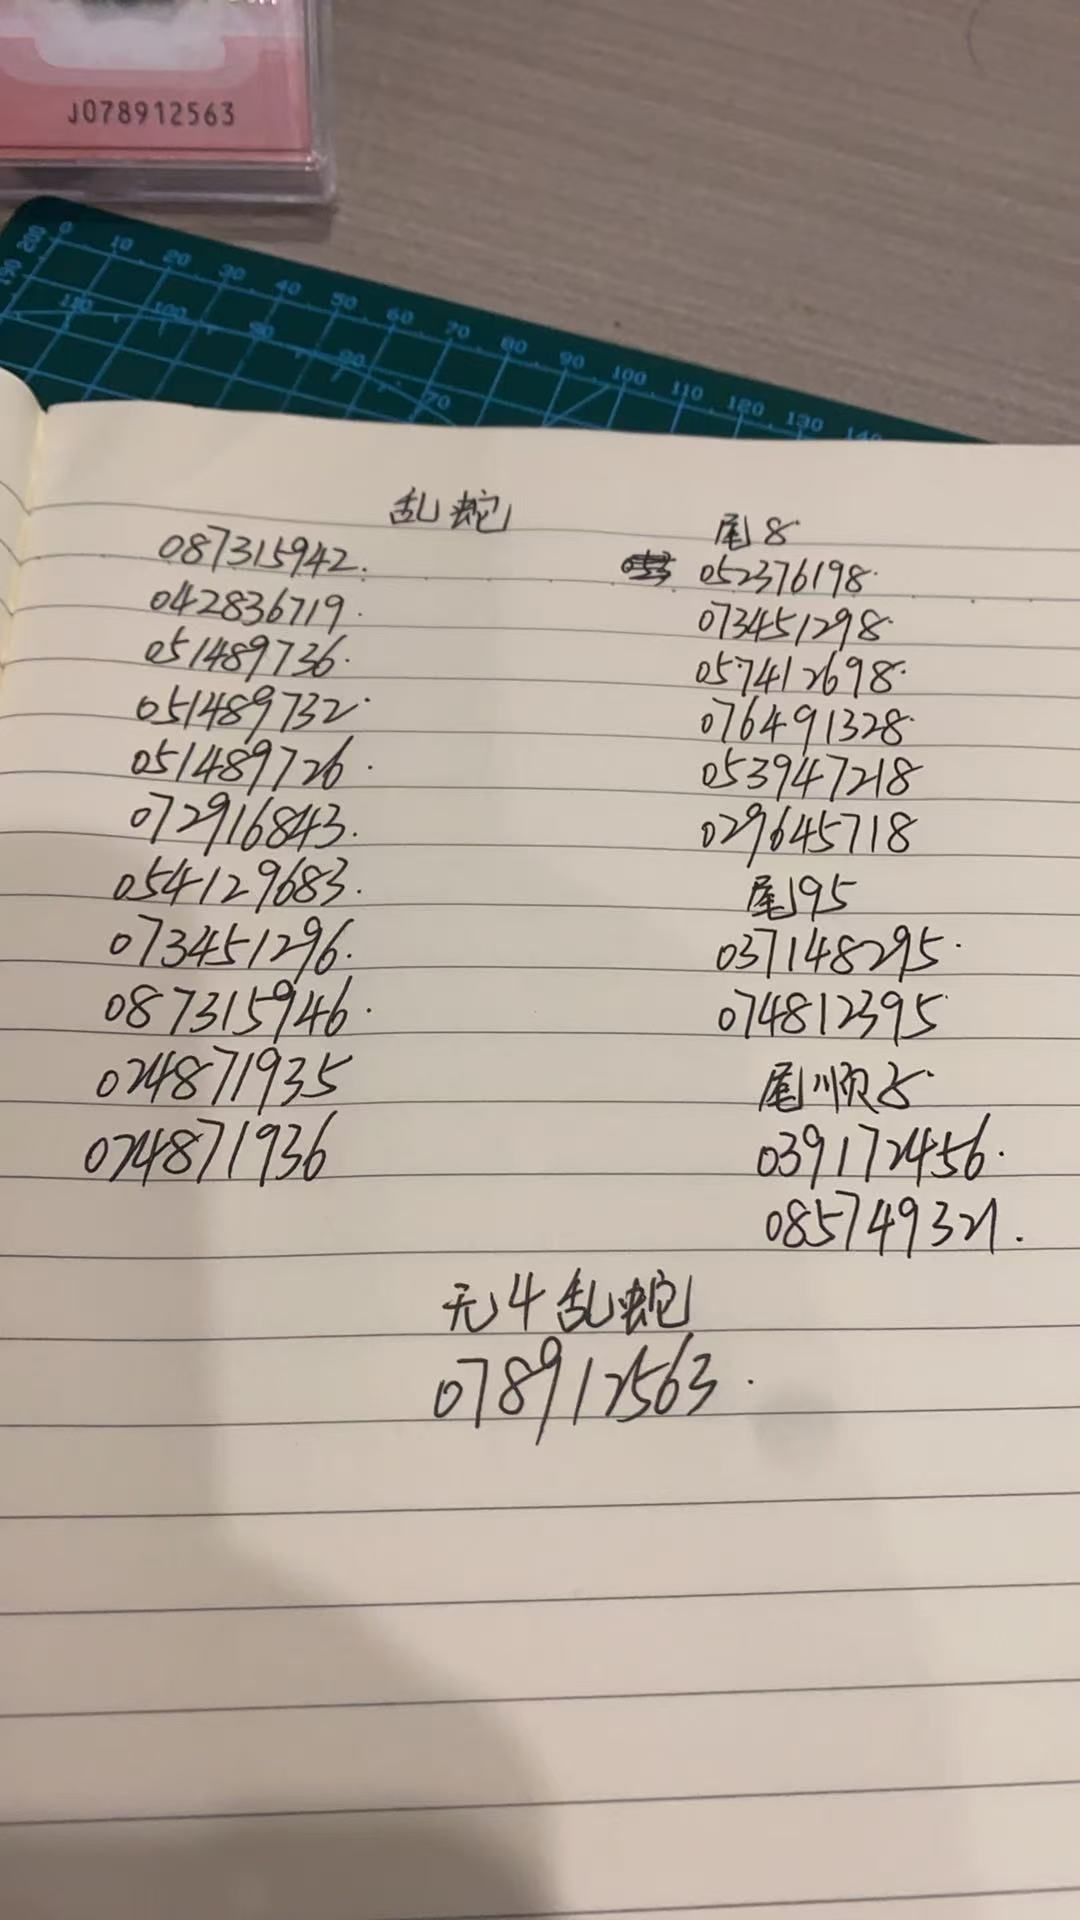 J078912563
0 10 20 30 40 50 60 70 80 90 100 110 120 130 140
200
190
110 100 90 80 70
乱蛇
087315942.
042836719.
051489736.
051489732.
051489726.
072916843.
054129683.
073451296.
087315946.
074871935
074871936
尾8.
052376198.
073451298.
057412698.
076491328.
053947218
029645718
尾95
037148295.
074812395
尾顺子
039172456.
085749321.
无4乱蛇
078912563.